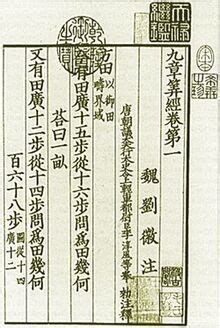 九章筭經卷第一
魏 劉徽 注
唐朝議大夫行太史令上輕車都尉臣李淳風等奉 勑注釋
方田 以御田
疇界域
今有田廣十五步從十六步問為田幾何
荅曰一畝
又有田廣十二步從十四步問為田幾何
百六十八步 圖從十四
廣十二